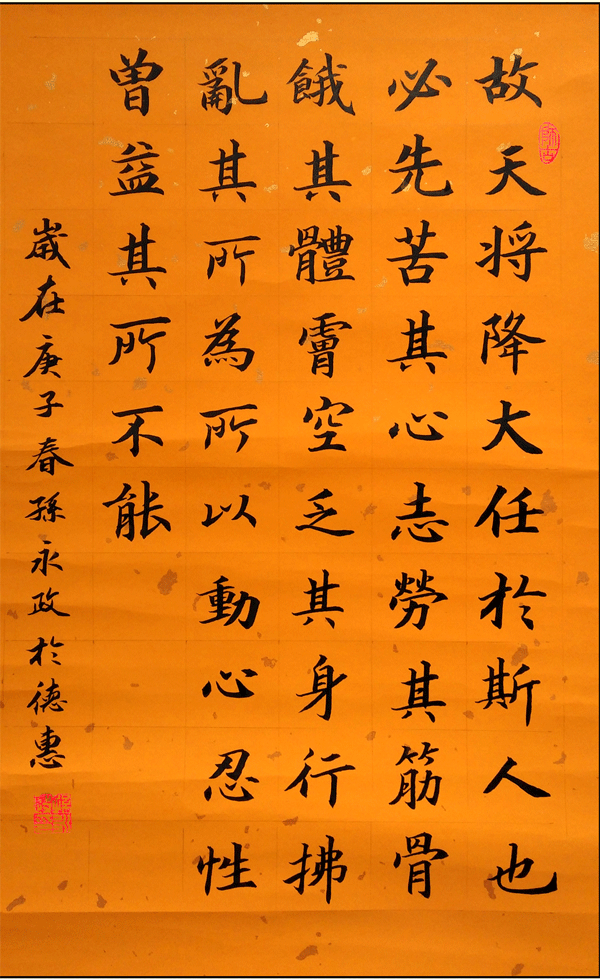 故天将降大任於斯人也
必先苦其心志勞其筋骨
餓其體膚空乏其身行拂
亂其所為所以動心忍性
曾益其所不能
歲在庚子春孫永政於德惠